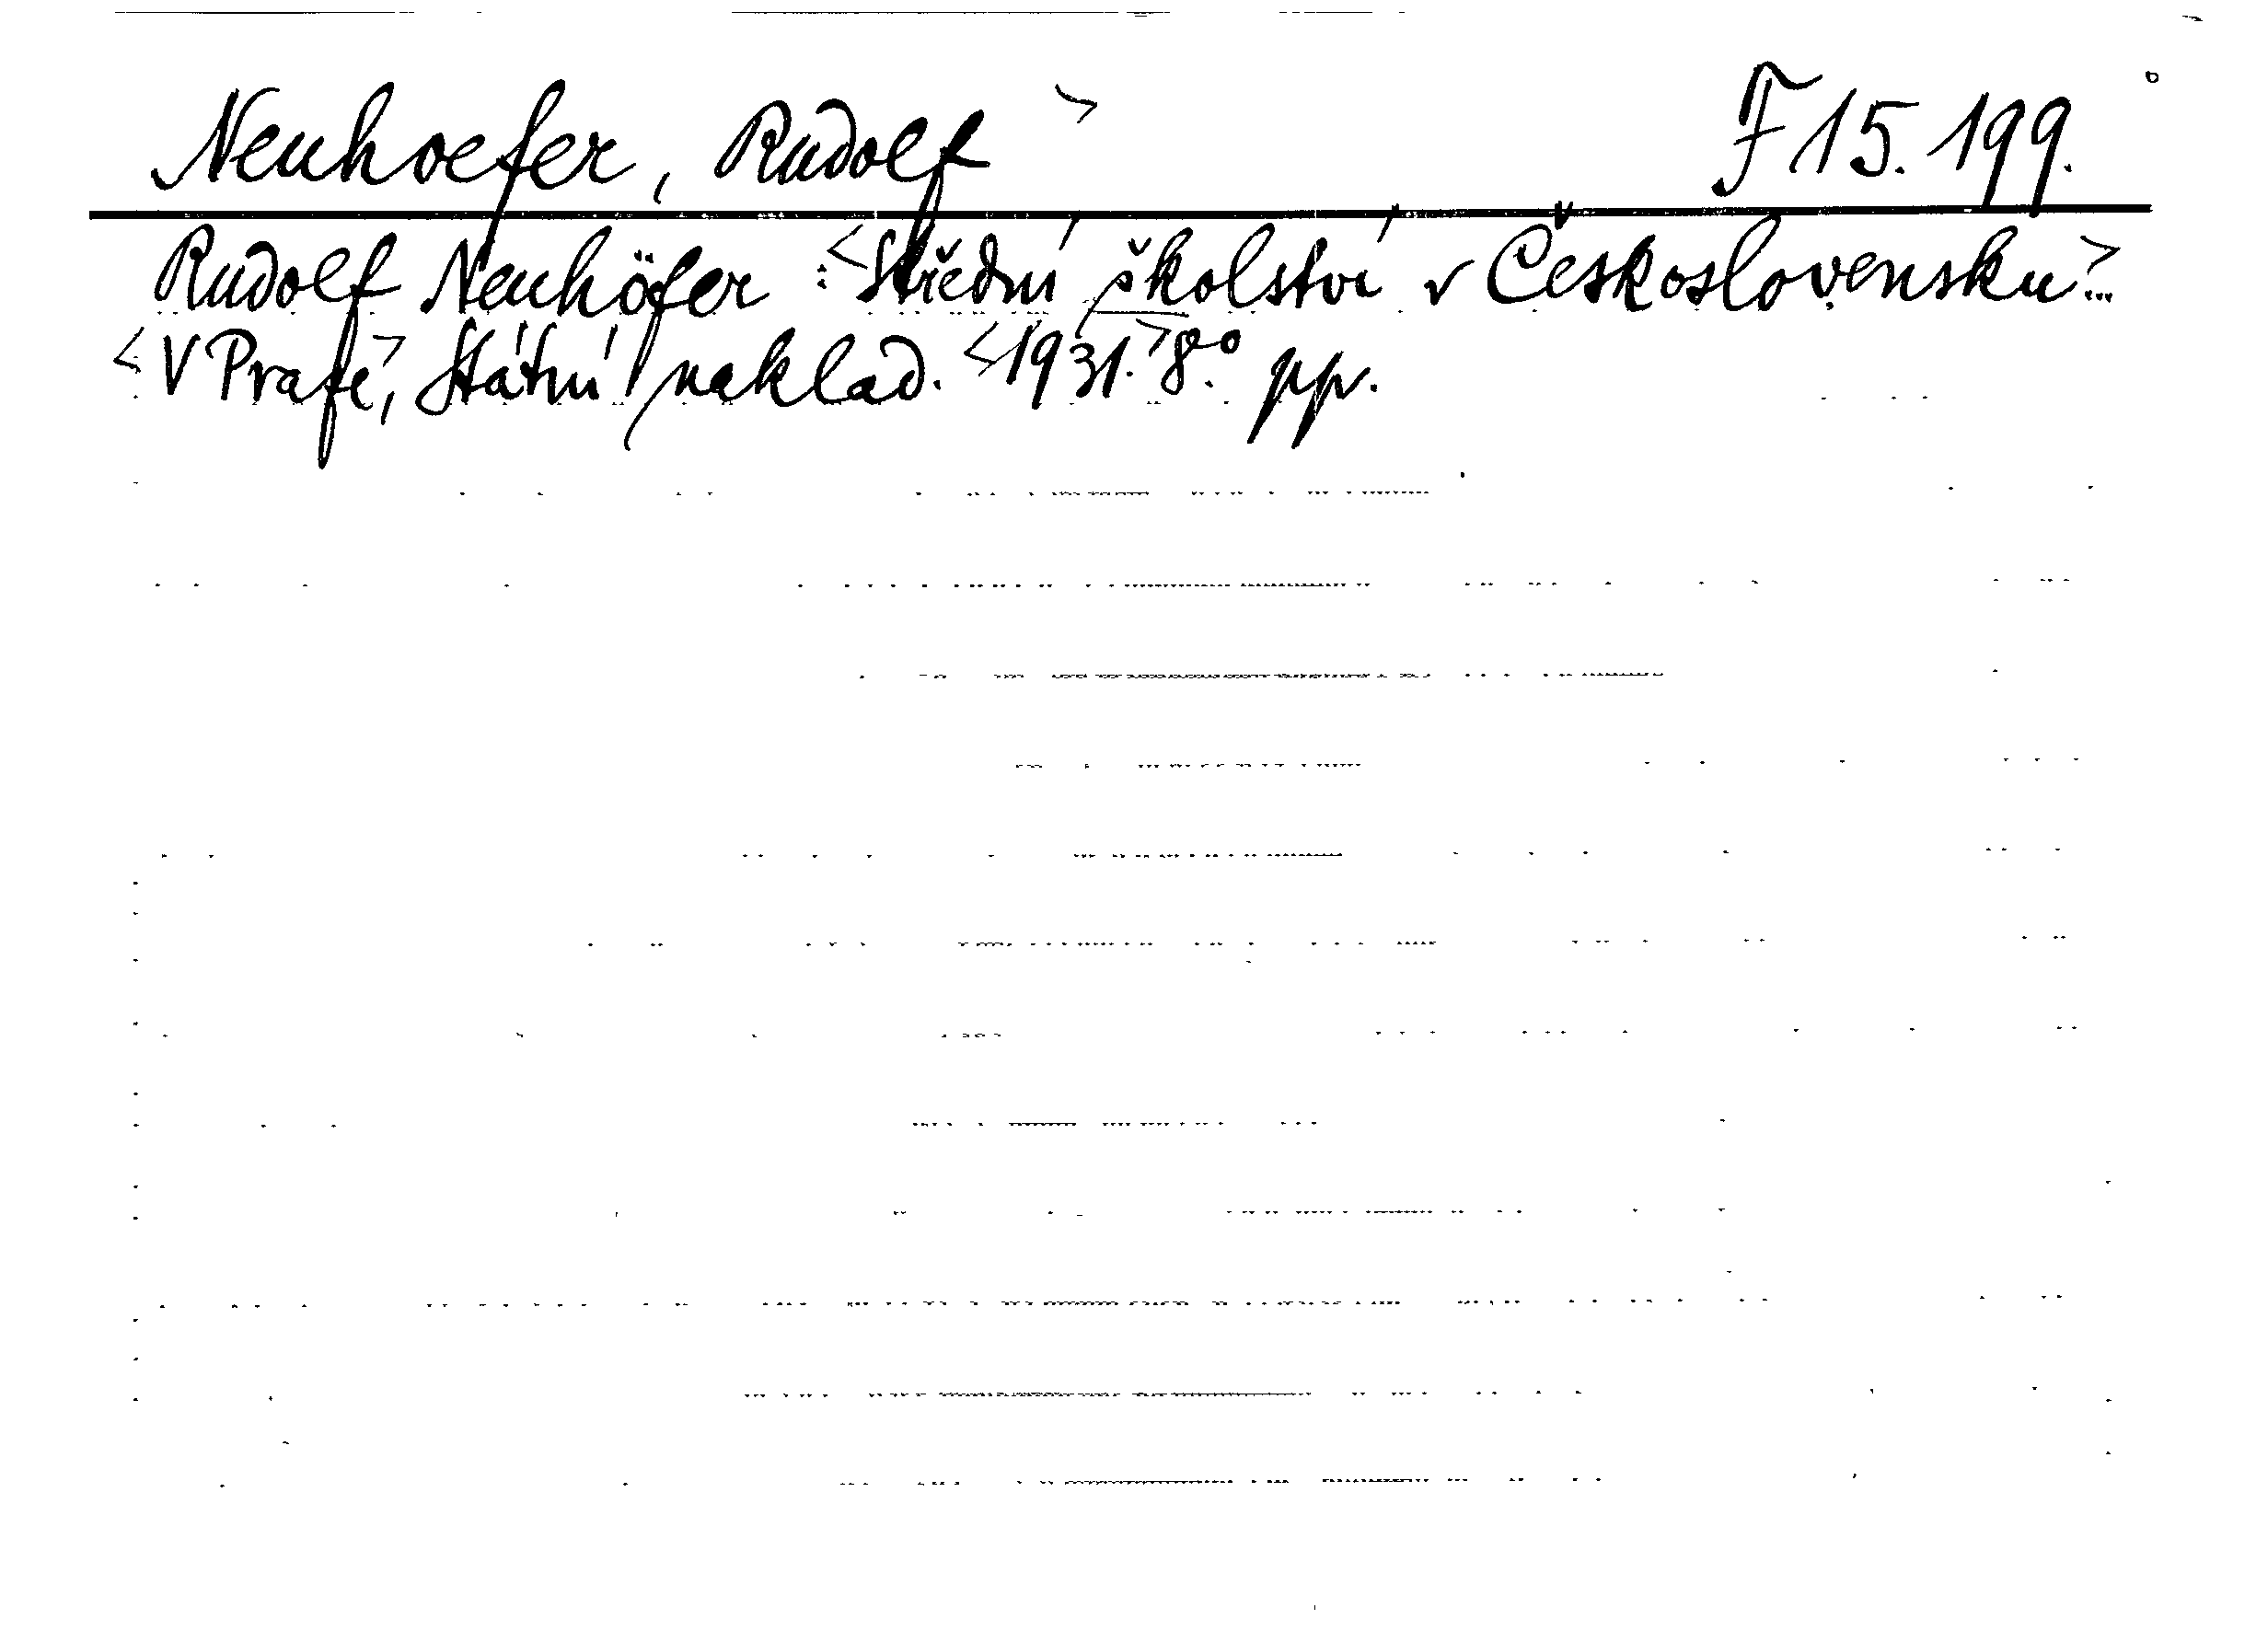 Neuhoefer, Rudolf> F 15.199.
Rudolf Neuhöfer: <Střední školství v Československu>...
<V Praze>, Státní naklad. <1931.> 8.° pp.